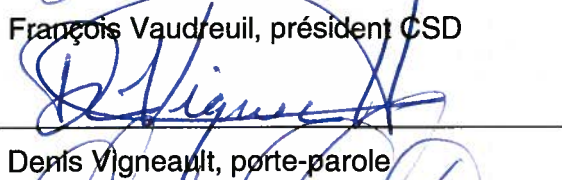 François Vaudreuil, président CSD
D. Vigneault
Denis Vigneault, porte-parole